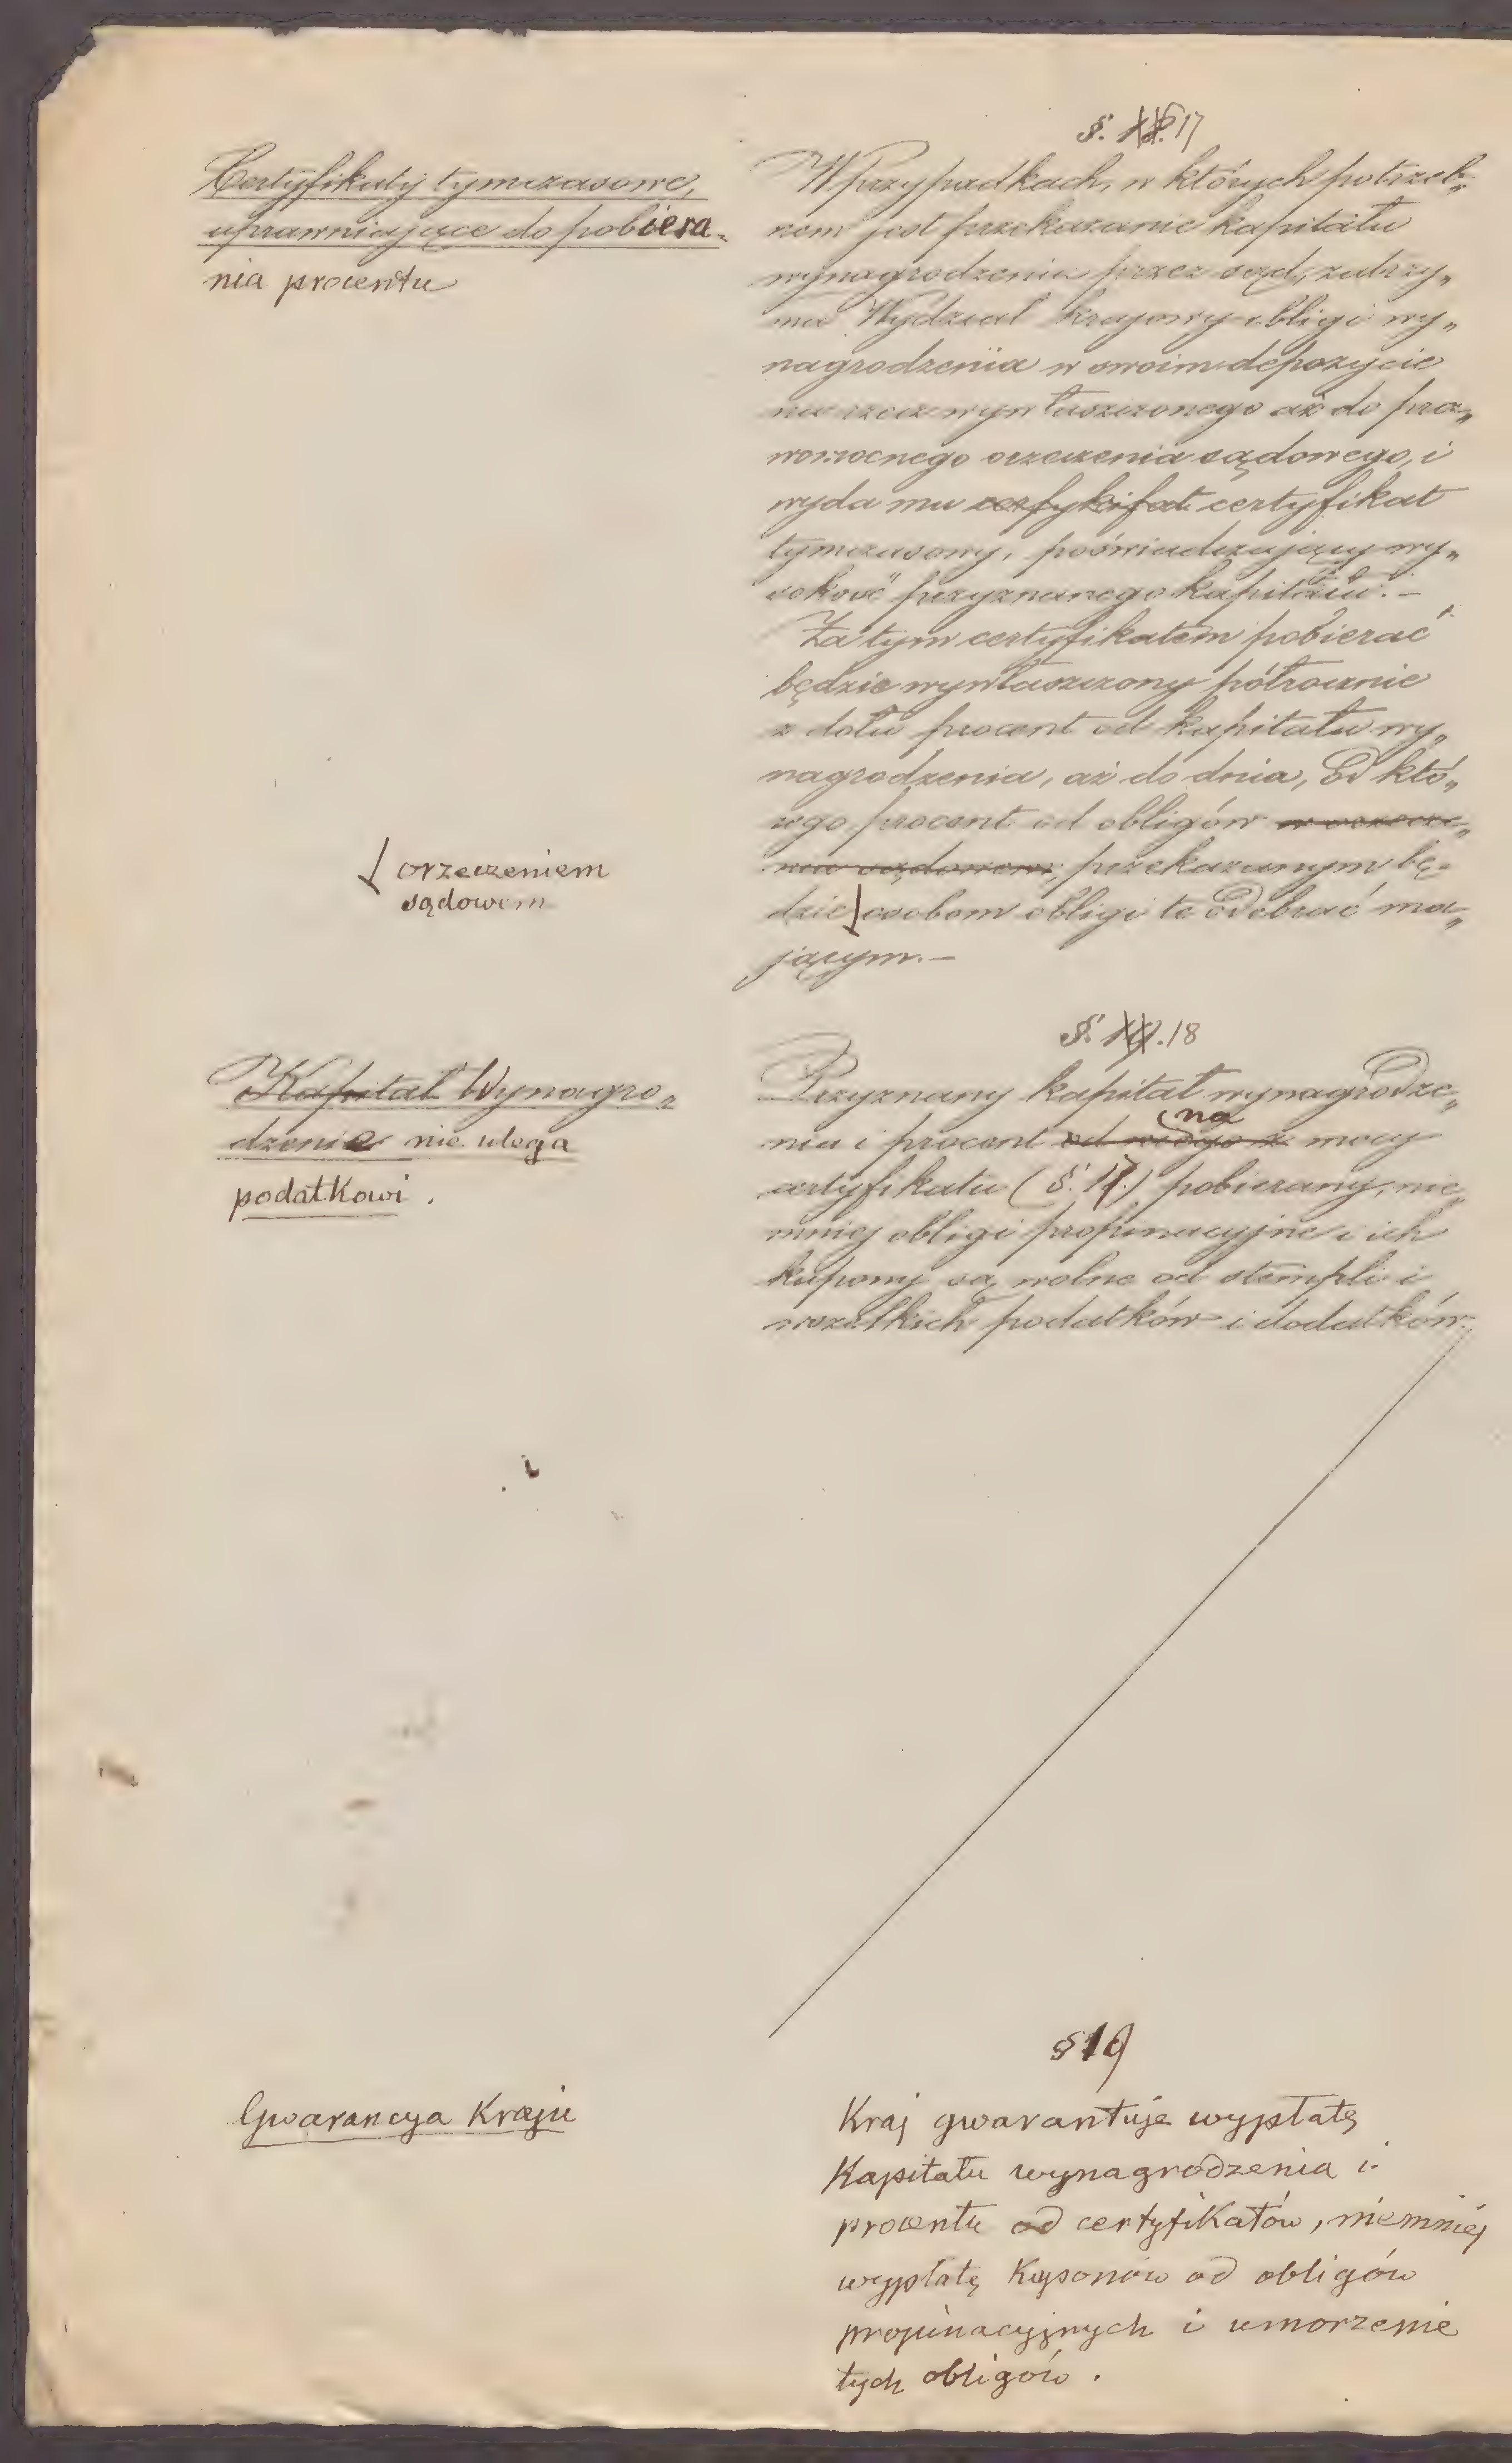 §. 17
Certyfikaty tymczasowe,
uprawniające do pobiera-
nia procentu
W Przypadkach, w których potrzeb„
nem jest przekazanie kapitału
wynagrodzenia przez sąd, zatrzy„
ma Wydział krajowy obligi wy„
nagrodzenia w swoim depozycie
na rzecz wywłaszczonego aż do pra„
womocnego orzeczenia sądowego, i
wyda mu certyfikat
tymczasowy, poświadczający wy„
sokość przyznanego kapitału. –
Za tym certyfikatem pobierać
będzie wywłaszczony półrocznie
z dołu procent od kapitału wy„
nagrodzenia, aż do dnia, od któ„
rego procent od obligów w orzecze„
niu sądowem, przekazanym bę-
dzie osobom obligi te odebrać ma„
jącym. –
orzeczeniem
sądowem
§. 18
Kapitał Wynagro„
dzenie nie ulega
podatkowi.
Przyznany kapitał wynagrodze„
nia i procent na mocy
certyfikatu (§. 17.) pobierany, nie„
mniej obligi propinacyjne i ich
kupony są wolne od stempli i
wszelkich podatków i dodatków.
§ 19
Gwarancya Kraju
Kraj gwarantuje wypłatę
Kapitału wynagrodzenia i
procentu od certyfikatów, niemniej
wypłatę Kuponów od obligów
propinacyjnych i umorzenie
tych obligów.